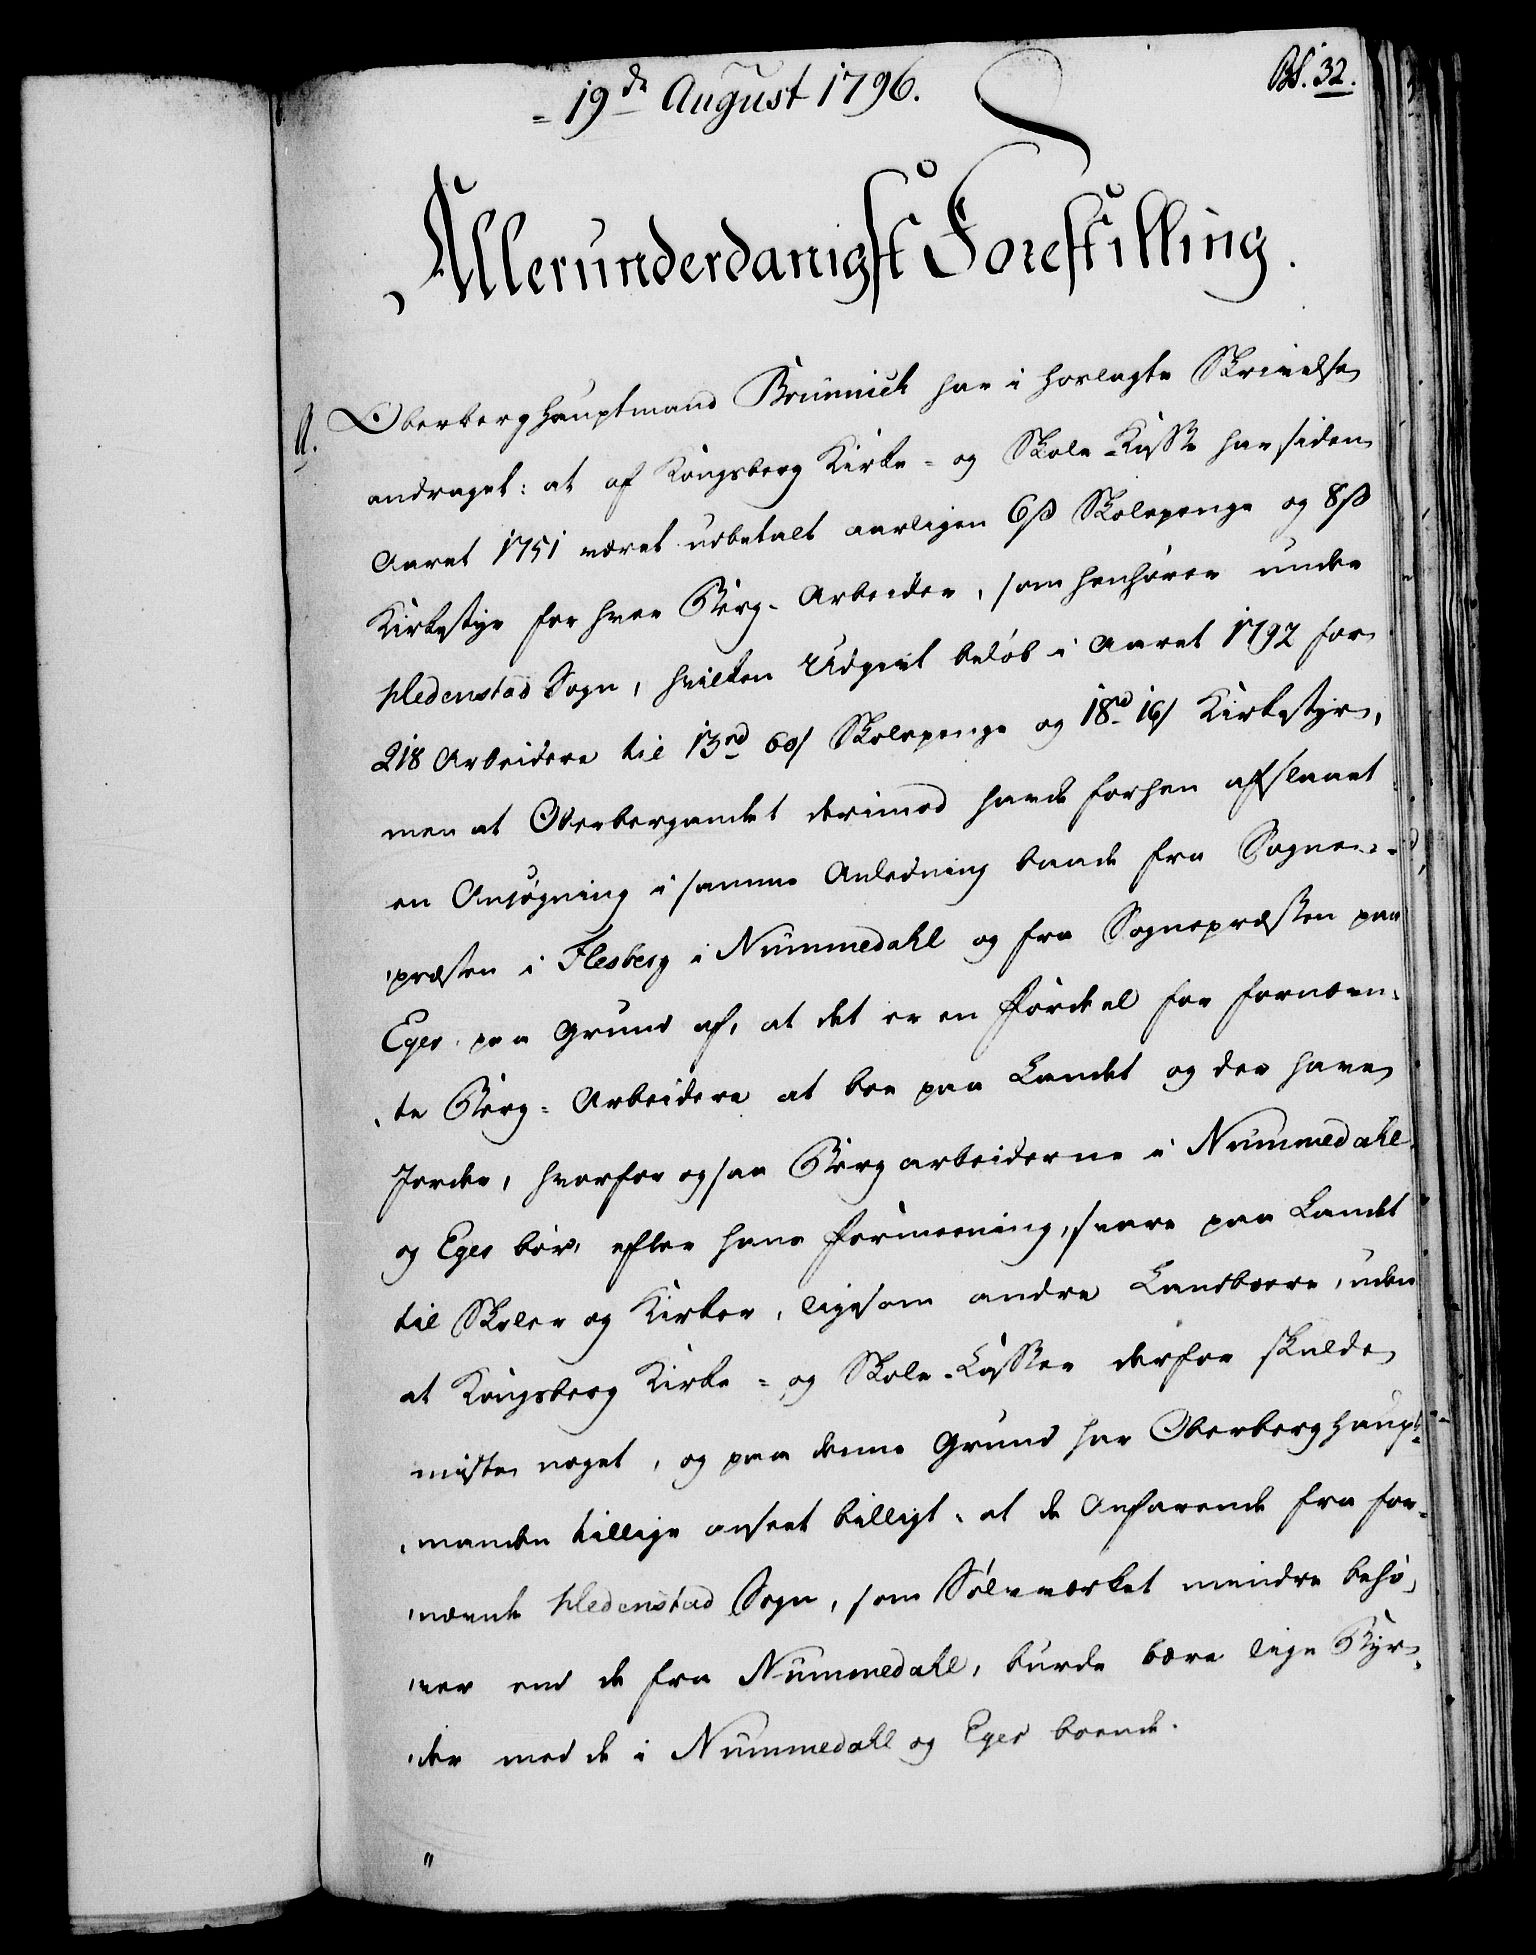 19de August 1796.
Bd. 32.
Allerunderdanigst Forestilling.
A. Oberberghauptmand Brünnich har i hoslagte Skrivelse
andraget: at af Kongsberg Kirke- og Skole-Kasse har siden
Aaret 1751 været udbetalt aarligen 6ß Skolepenge og 8ß
Kirketÿe for hver Berg-Arbeider, som henhører under
Hedenstad Sogn, hvilken Udgivt beløb i Aaret 1792 for
218 Arbeidere til 13rd 60/ Skolepenge og 18rd 16/ Kirketÿe,
men at Oberbergamtet derimod havde forhen afslaaet
en Ansøgning i samme Anledning baade fra Sogne-
præsten i Flesberg i Nummedahl og fra Sognepræsten paa
Eger paa Grund af, at det er en Fordeel for fornævn-
te Berg-Arbeidere at boe paa Landet og der have
Jorder, hvorfor ogsaa Bergarbeiderne i Nummedahl
og Eger bør, efter hans Formeening, svare paa Landet
til Skoler og Kirker, ligesom andre Landboere, uden
at Kongsberg Kirke- og Skole-Casser derfor skulde
miste noget, og paa denne Grund har Oberberghaupt-
manden tillige anseet billigt, at de Anfarende fra for-
nævnte Hedenstad Sogn, som Sølvværket mindre behø-
ver end de fra Nummedahl, burde bære lige Byr-
der med de i Nummedahl og Eger boende.
"